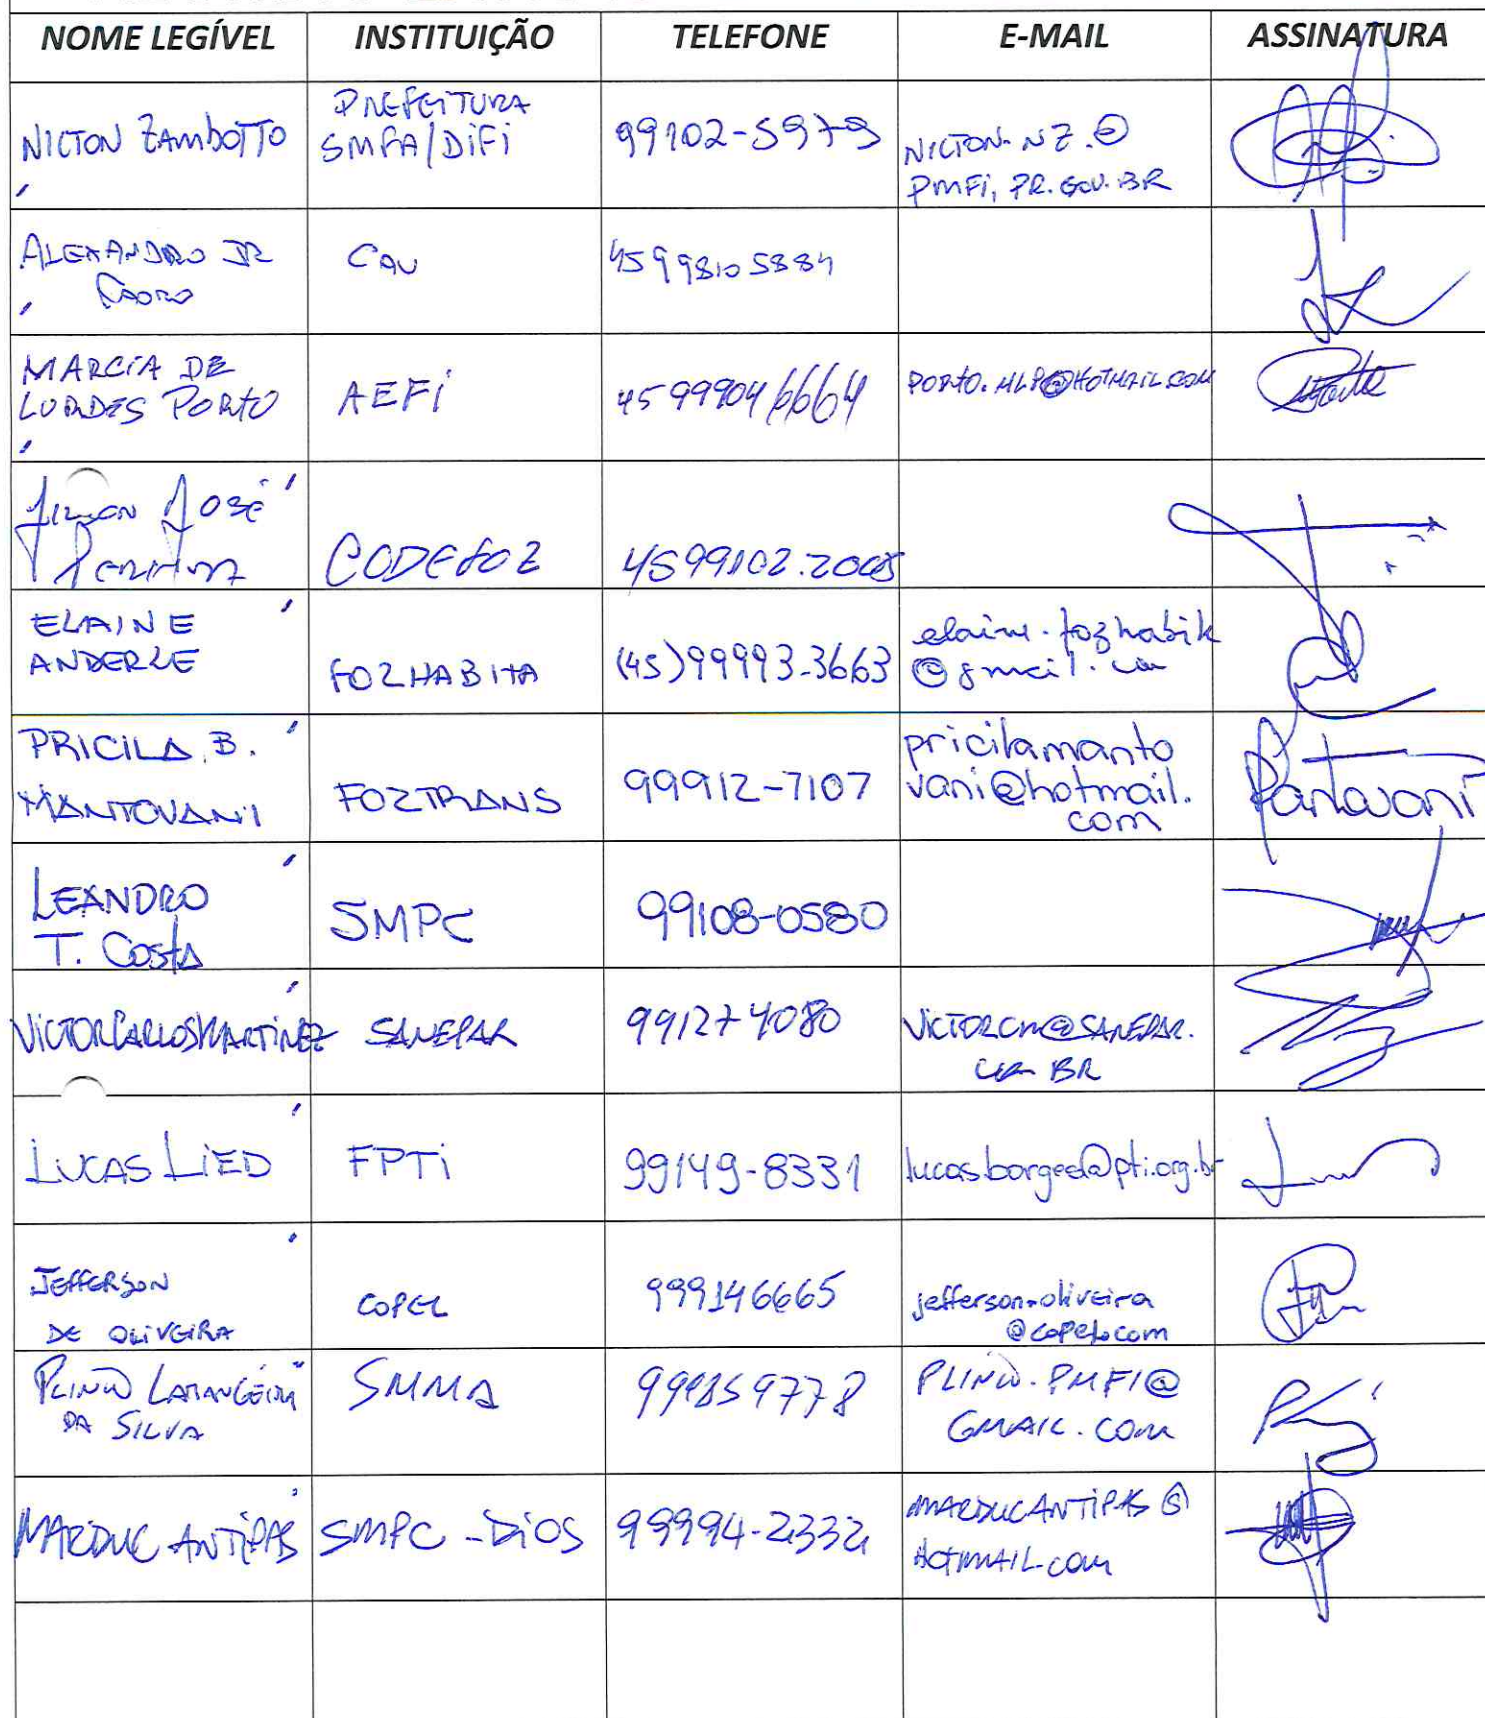 NOME LEGÍVEL INSTITUIÇÃO TELEFONE E-MAIL ASSINATURA
NILTON ZAMBOTTO PREFEITURA SMFA/DIFI 99102-5979 NILTON.NZ.@ PMFI, PR.GOV.BR
ALEXANDRO JR CAU 45 998105884
MARCIA DE LURDES PORTO AEFI 45 999046664 PORTO.MLP@HOTMAIL.COM
JOSÉ CODEFOZ 4599102.2005
ELAINE ANDERLE FOZHABITA (45)99993-3663 @gmail.
PRICILA B. MANTOVANI FOZTRANS 99912-7107 pricilamanto vani@hotmail. com
LEANDRO T. COSTA SMPC 99108-0580
VICTOR CARLOS MARTINEZ SANEPAR 991274080 VICTORCM@SANEPAR. COM BR
LUCAS LIED FPTI 99149-8331 lucas.borges@pti.org.br
JEFFERSON DE OLIVEIRA COPEL 999146665 jefferson.oliveira @copel.com
LARANGEIRA DA SILVA SMMA PMFI@ GMAIL.COM
MARDUC ANTIPAS SMPC-DIOS 99994-2332 MARDUCANTIPAS@ HOTMAIL.COM